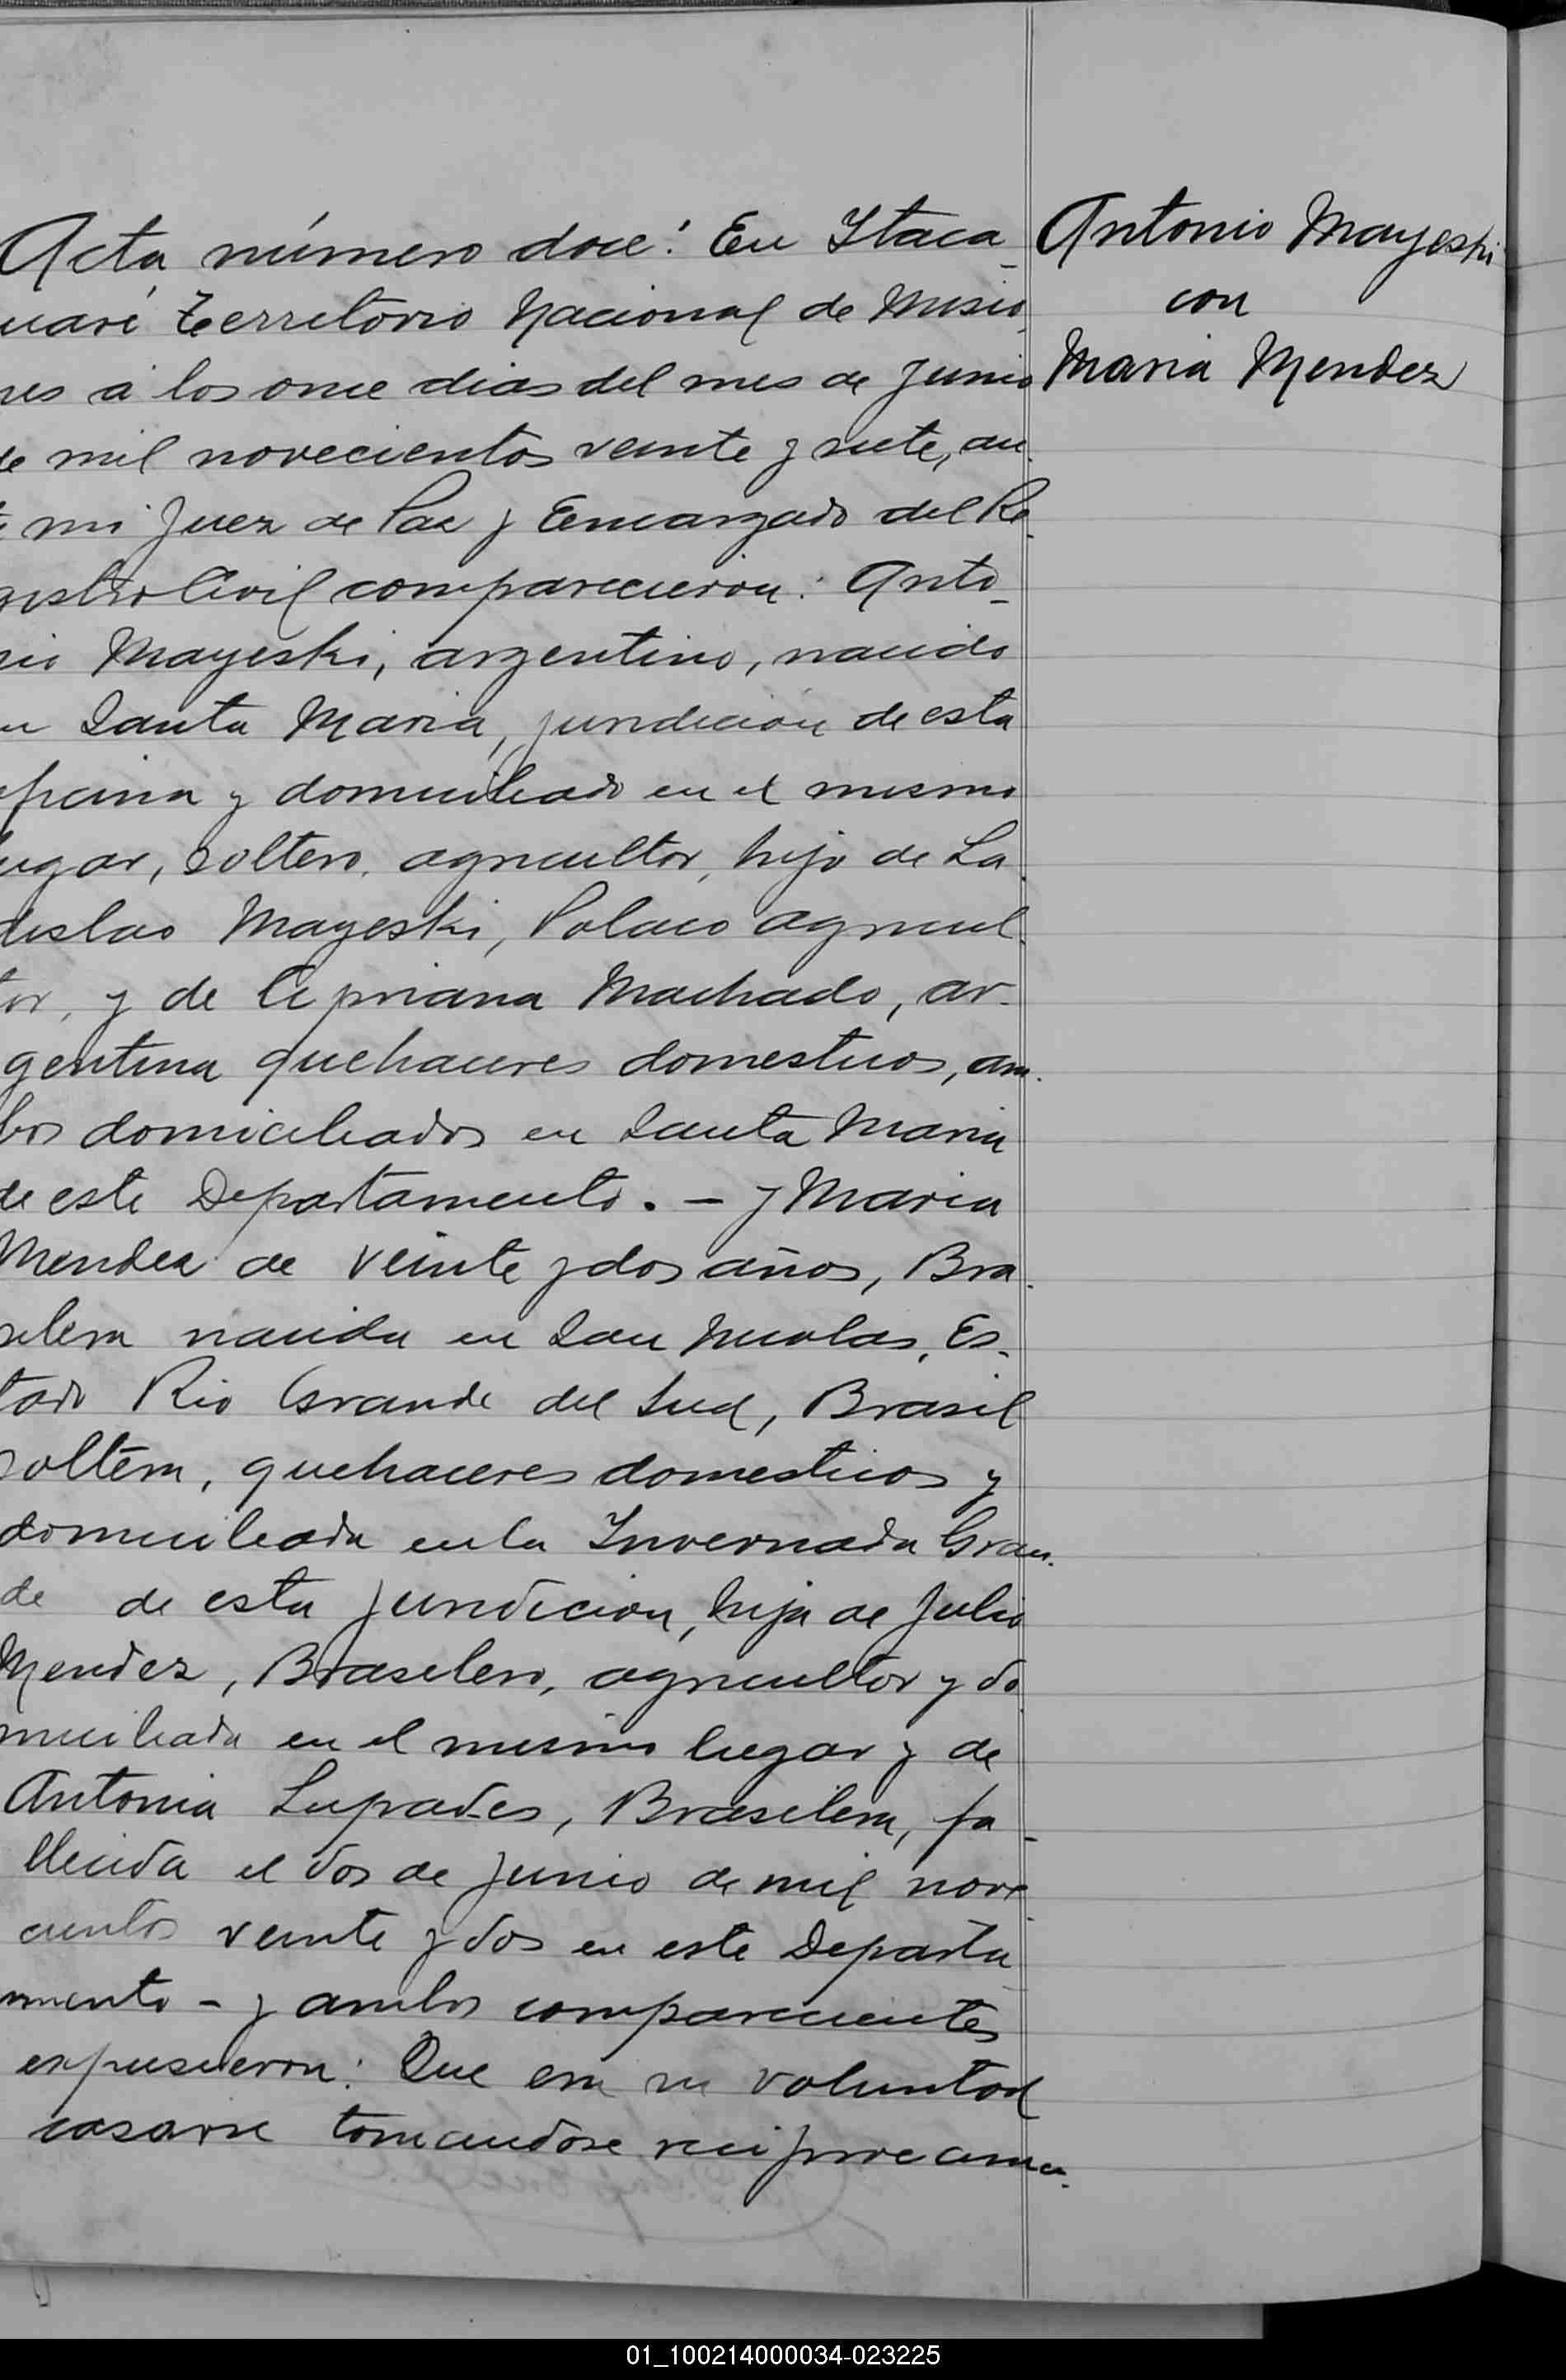 Acta número doce: En Itaca-
uaré Territorio Nacional de Misio-
nes á los once dias del mes de Junio
de mil novecientos veinte y siete, an-
te mi Juez de Paz y Encargado del Re-
gistro Civil comparecieron: Anto-
nio Mayeski, argentino, nacido
en Santa Maria, juridicion de esta
oficina y domiciliado en el mismo
lugar, soltero, agricultor, hijo de La-
dislao Mayeski, Polaco agricul-
tor, y de Cipriana Machado, ar-
gentina quehaceres domesticos, am-
bos domiciliados en Santa Maria
de este Departamento. - y Maria
Mendez de veinte y dos años, Bra-
silera nacida en San Nicolas, Es-
tado Rio Grande del Sud, Brasil
soltera, quehaceres domesticos y
domiciliada en la Invernada Gran-
de de esta juridicion, hija de Julio
Mendez, Brasilero, agricultor y do
miciliada en el mismo lugar y de
Antonia Luprades, Brasilera, fa-
llecida el dos de Junio de mil nove
cientos veinte y dos en este Departa
mento - y ambos comparecientes
expusieron: Que era su voluntad
casarse tomandose reciprocame-
Antonio Mayeski
con
Maria Mendez
01_100214000034-023225